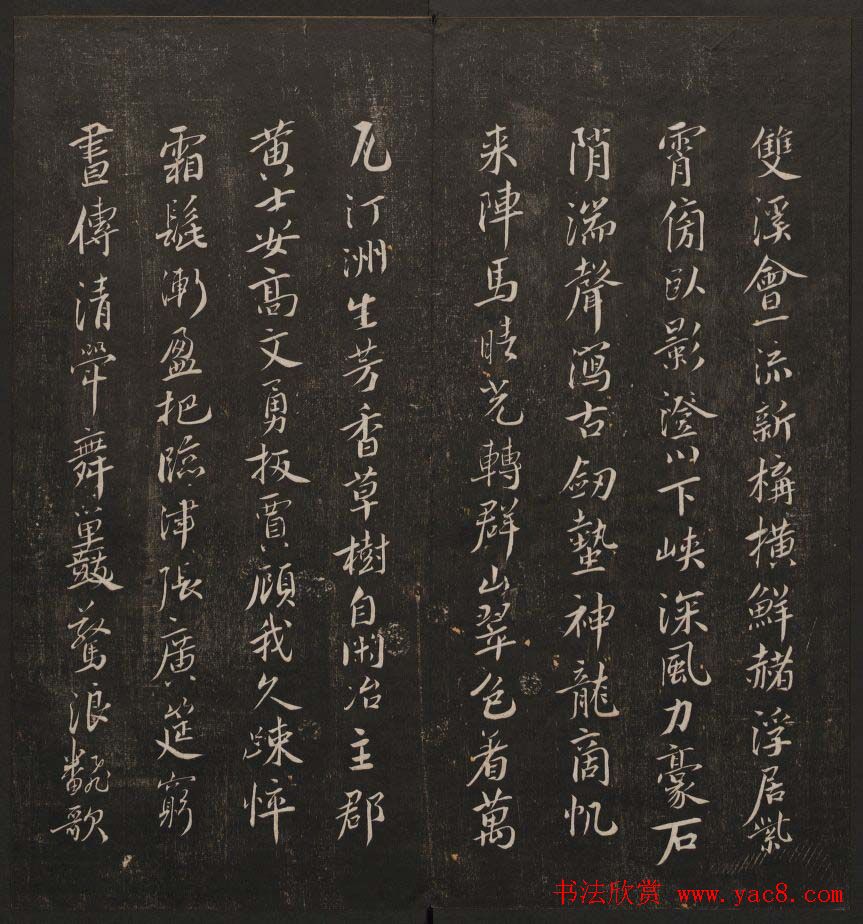 雙溪會一流新構橫鮮赭浮居紫
霄傍臥影澄川下峽深風力豪石
陗湍聲瀉古劒蟄神龍商帆
來陣馬晴光轉群山翠色着萬
瓦汀洲生芳香草樹自閑冶主郡
黃士安高文勇扳賈顧我久疎悴
霜髭漸盈把臨津張廣筵窮
晝傳清斝舞鼉驚浪翻歌
书法欣赏 www.yac8.com